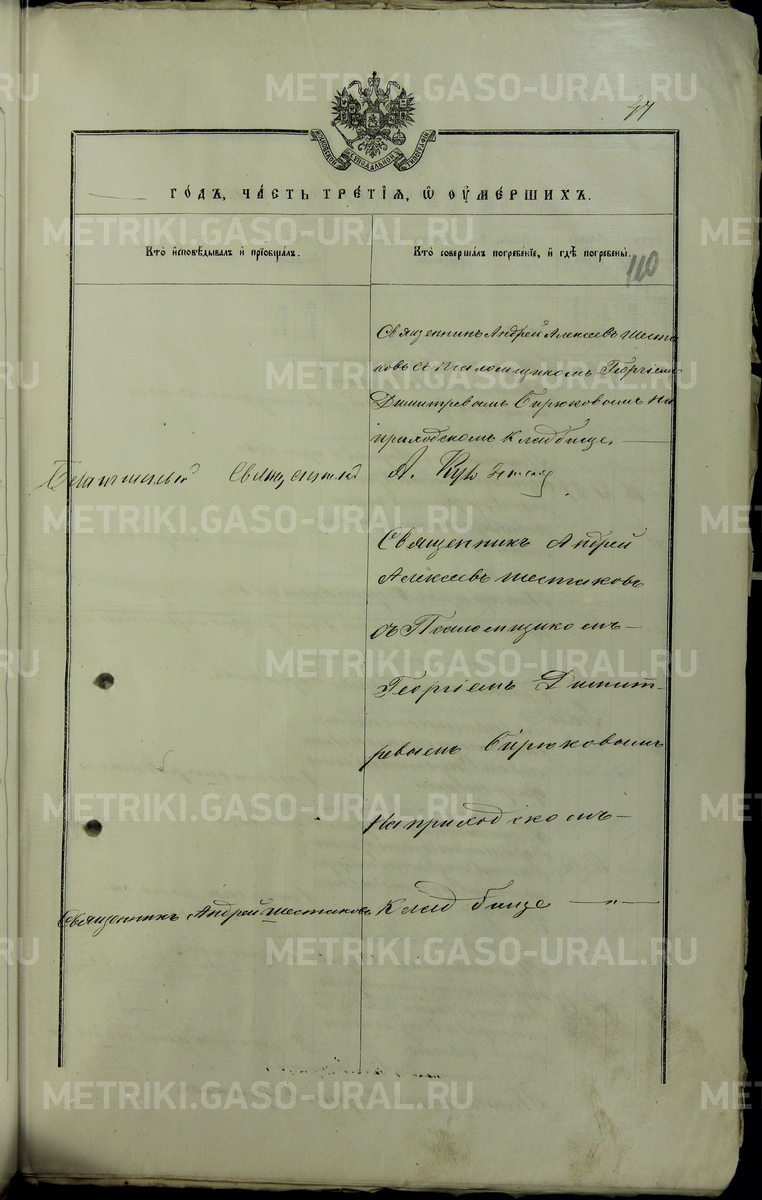 47
МОСКОВСКОЙ СѴНОДАЛЬНОЙ ТИПОГРАФІИ
ГО́ДЪ, ЧА́СТЬ ТРЕ́ТІЯ, Ѡ҆ ОУ҆МЕ́РШИХЪ.
Кто̀ и҆сповѣ́дывалъ и҆ прїѡбща́лъ.
Кто̀ соверша́лъ погребе́нїе, и҆ гдѣ̀ погребены̀.
110
Священникъ Андрей Алексѣевъ Шеста
ковъ съ Псаломщикомъ Георгіемъ
Димитревымъ Бирюковымъ на
приходскомъ кладбище.
священникъ
А.
Священникъ Андрей
Алексѣевъ Шестаковъ
съ Псаломщикомъ
Георгіемъ Димит-
ревымъ Бирюковымъ
на приходскомъ
Священникъ Андрей Шестаковъ
кладбище
METRIKI.GASO-URAL.RU